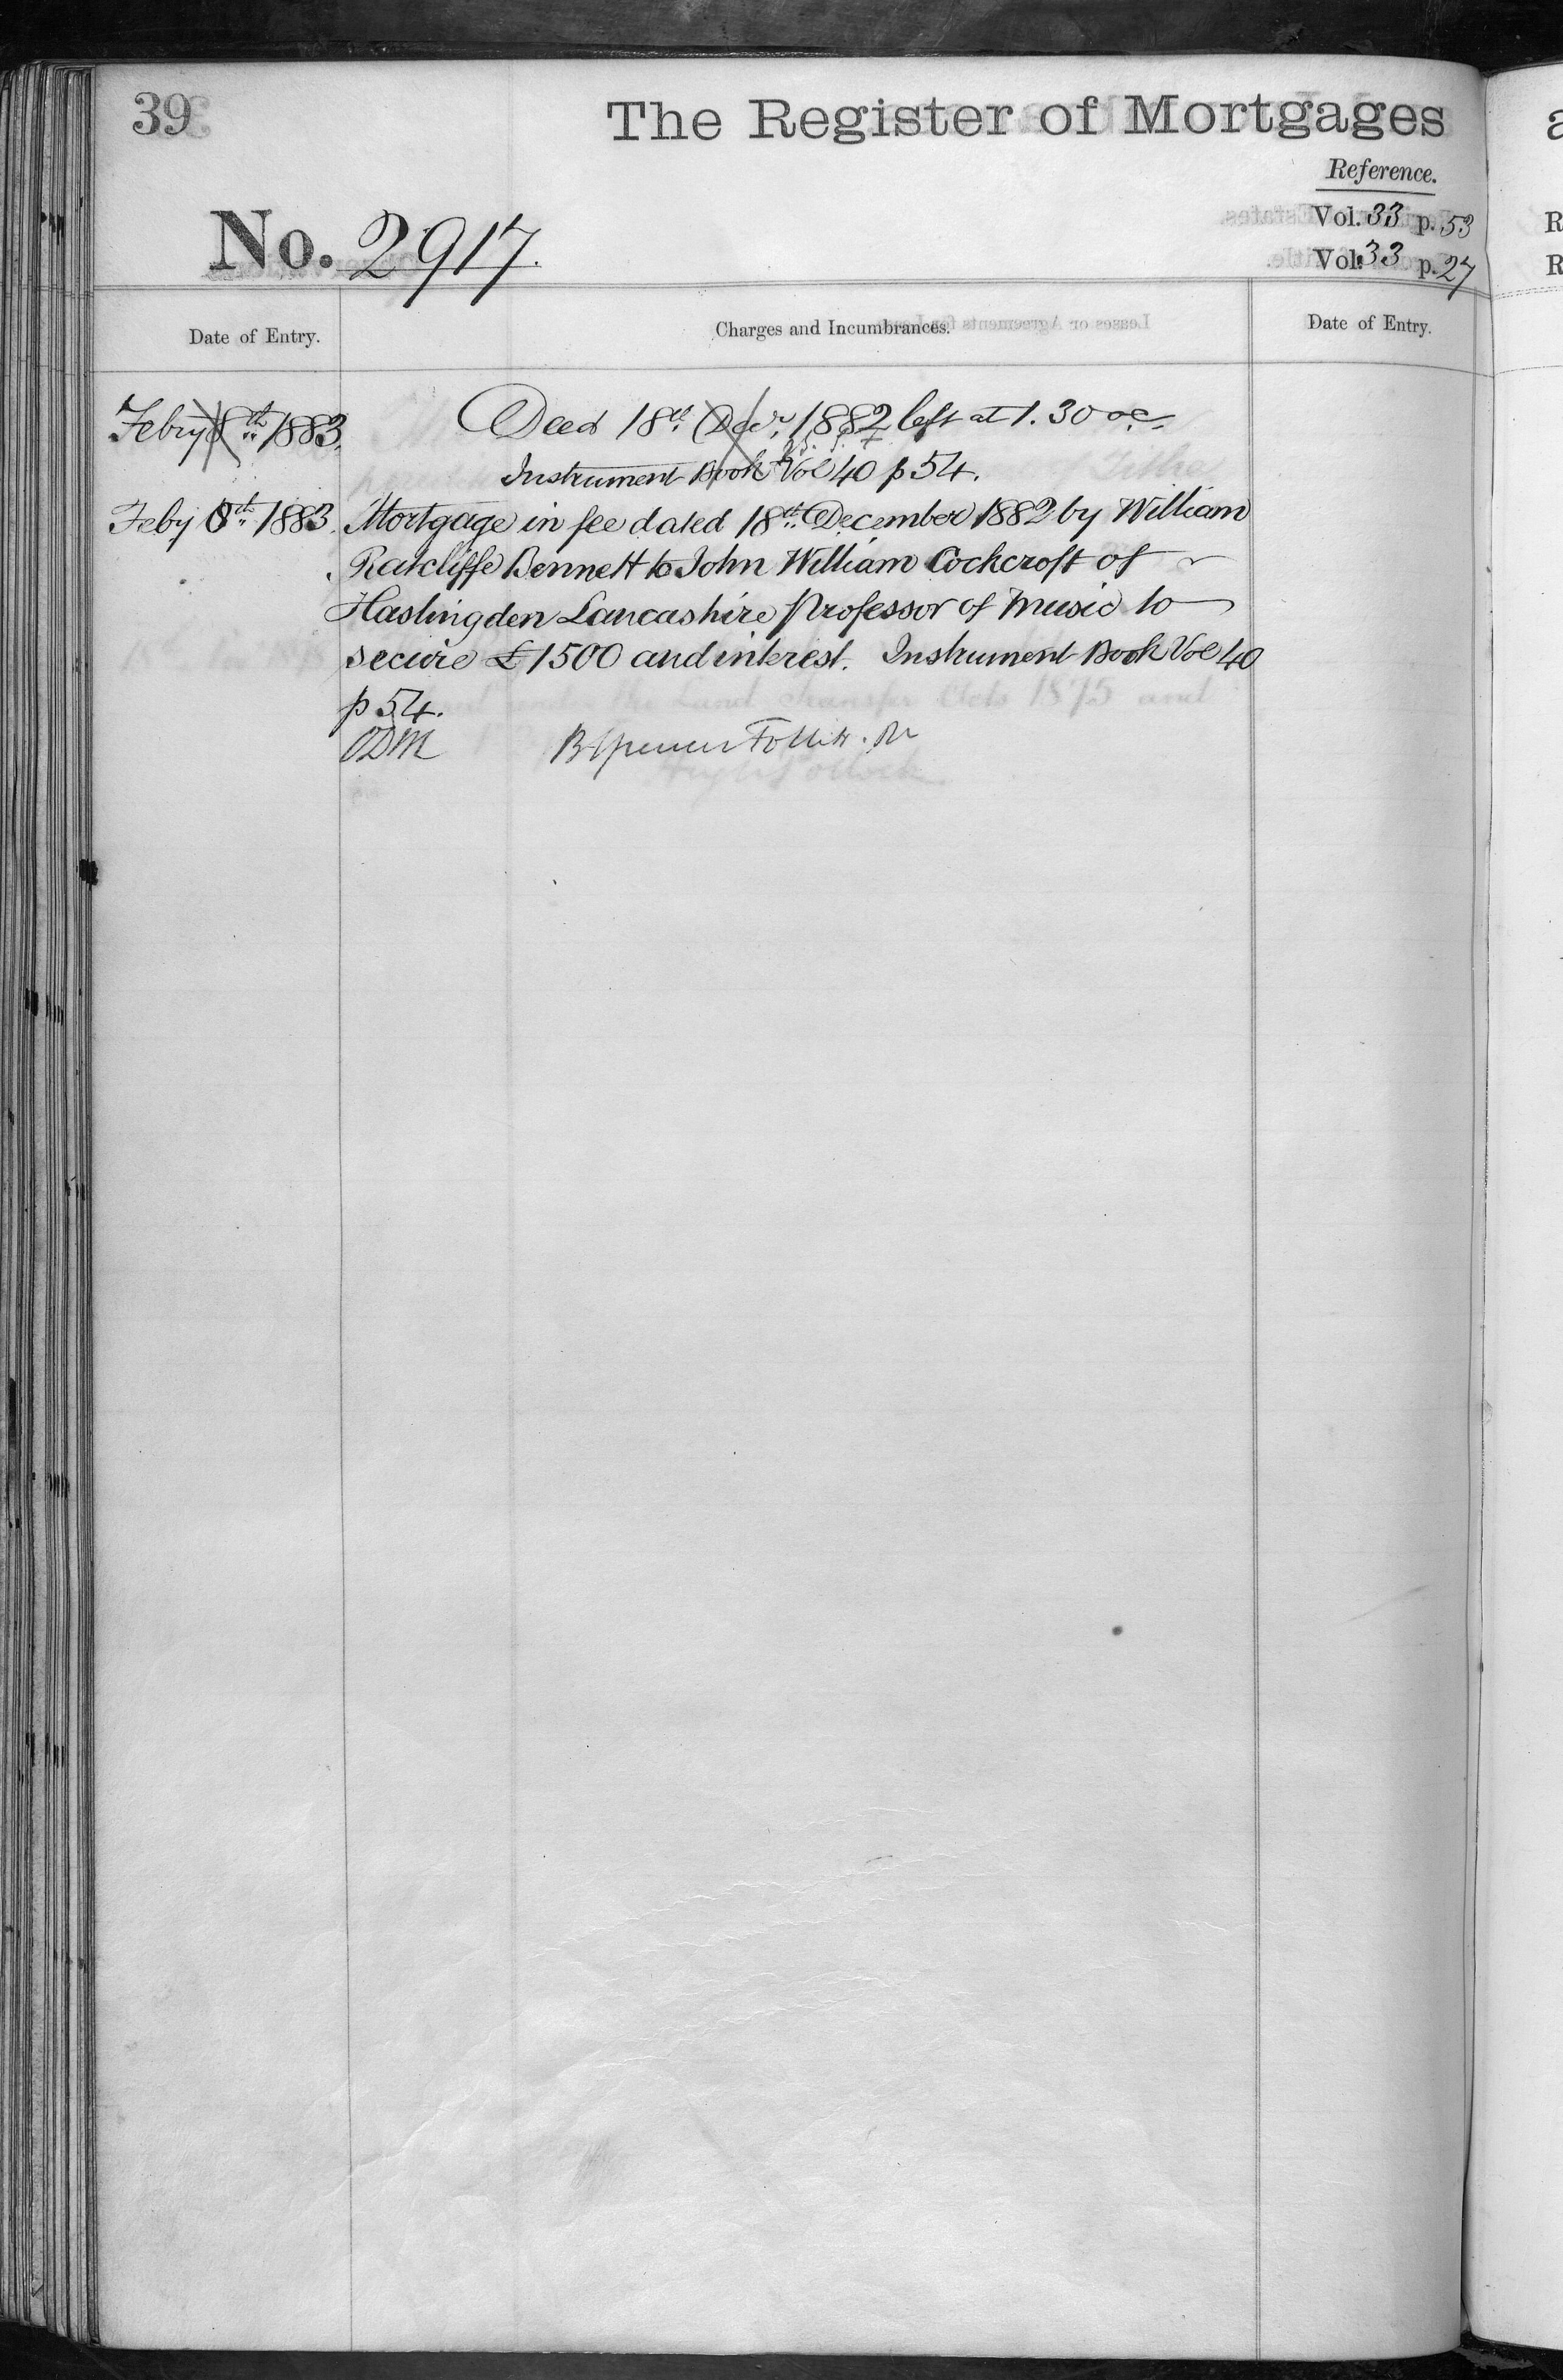 39
The Register of Mortgages
Reference.
Vol. 33 p. 53
Vol. 33 p. 27
No. 2917.
Date of Entry.
Charges and Incumbrances.
Date of Entry.
Febry 8th 1883.
Deed 18th Decr. 1882 left at 1.30 oc.
Instrument Book Vol 40 p 54.
Feby 8th 1883.
Mortgage in fee dated 18th December 1882 by William
Ratcliffe Bennett to John William Cockcroft of
Haslingden Lancashire Professor of Music to
secure £1500 and interest. Instrument Book Vol 40
p 54.
ODM